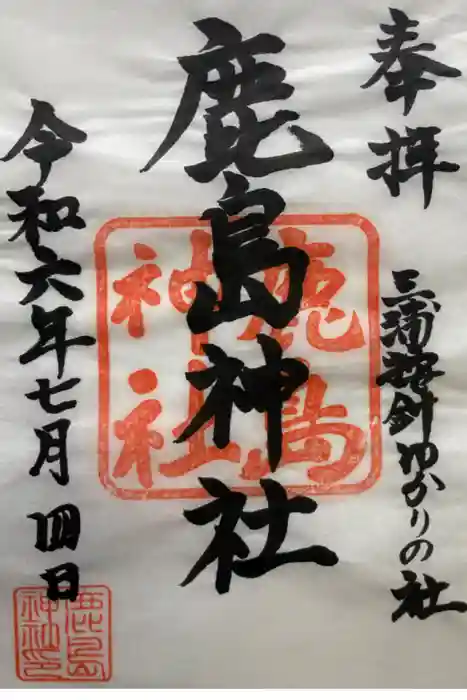 奉拝
三浦按針ゆかりの社
鹿島神社
鹿島
神社
令和六年七月四日
鹿島
神社印